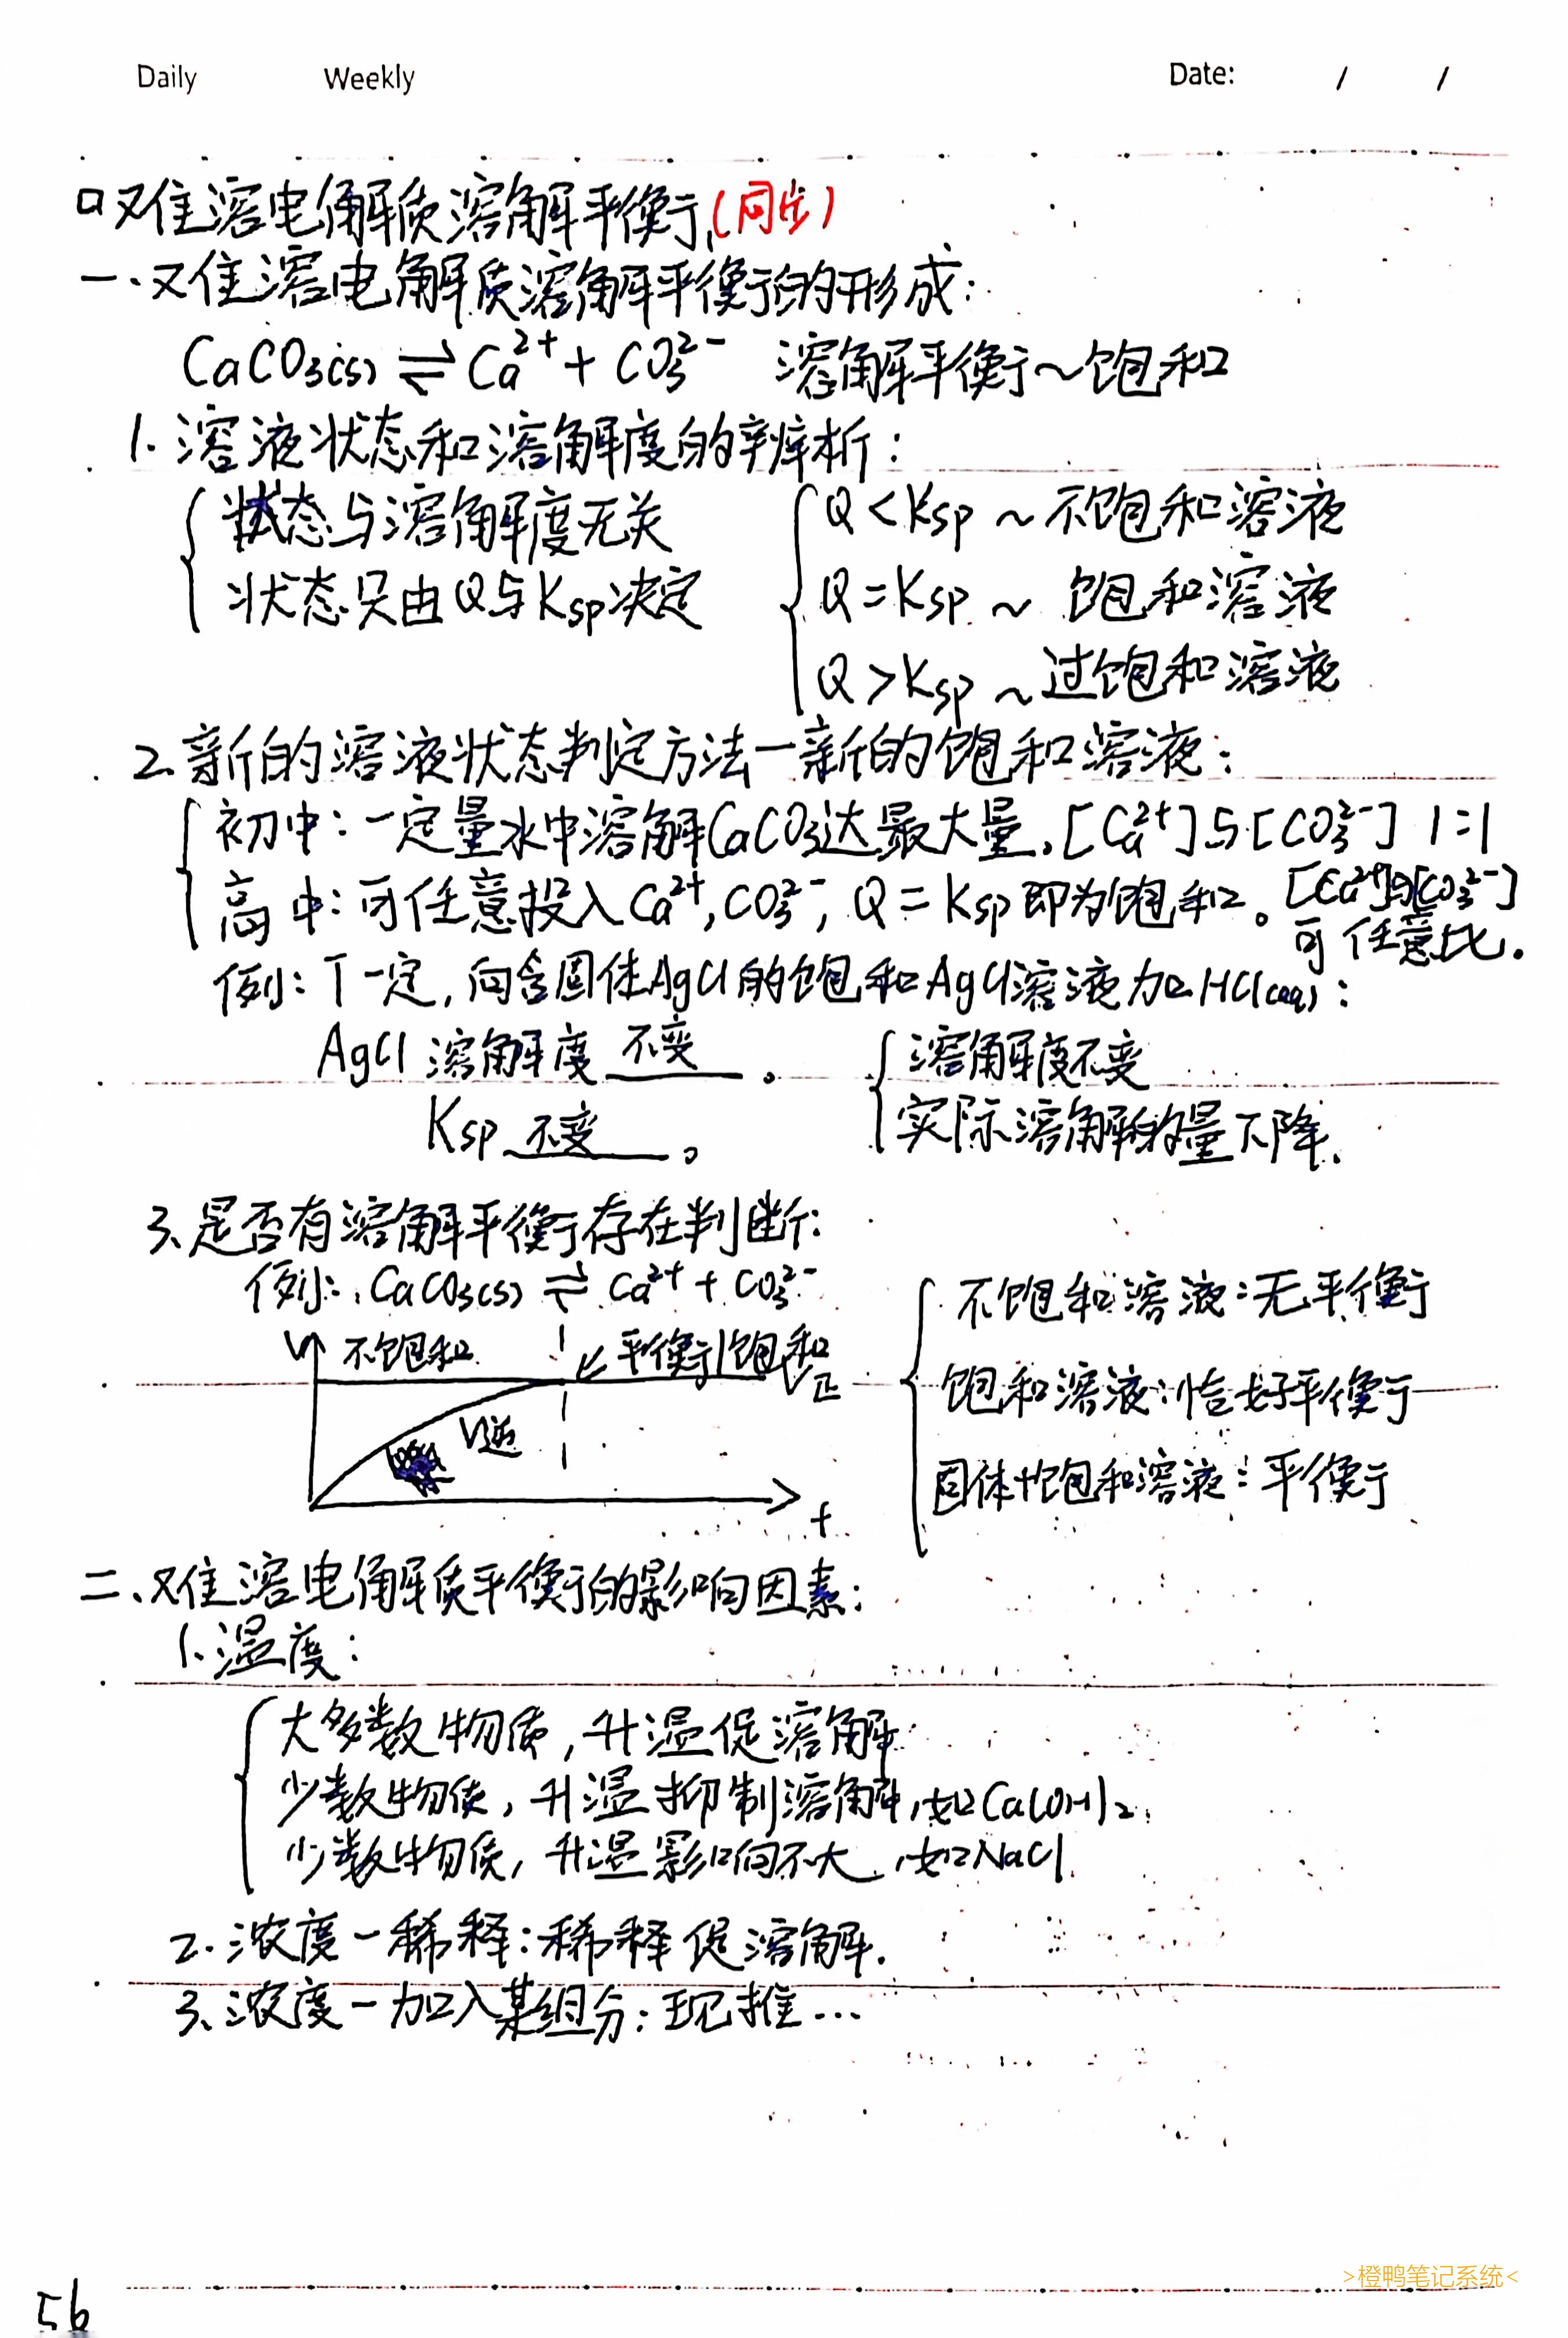 Daily Weekly Date: / /
口难溶电解质溶解平衡(同步)
一、难溶电解质溶解平衡的形成:
CaCO₃(s) ⇌ Ca²⁺ + CO₃²⁻ 溶解平衡~饱和
1. 溶液状态和溶解度的辨析:
状态与溶解度无关
状态只由Q与Ksp决定
Q < Ksp ~ 不饱和溶液
Q = Ksp ~ 饱和溶液
Q > Ksp ~ 过饱和溶液
2. 新的溶液状态判定方法—新的饱和溶液:
初中: 一定量水中溶解CaCO₃达最大量, [Ca²⁺]与[CO₃²⁻] 1:1
高中: 可任意投入Ca²⁺, CO₃²⁻, Q = Ksp 即为饱和。[Ca²⁺]与[CO₃²⁻]
可任意比.
例: T一定, 向含固体AgCl的饱和AgCl溶液加HCl(aq):
AgCl 溶解度 不变 。
Ksp 不变 。
溶解度不变
实际溶解的量下降.
3、是否有溶解平衡存在判断:
例: CaCO₃(s) ⇌ Ca²⁺ + CO₃²⁻
V 不饱和 ↙平衡/饱和
V正
V逆
t
不饱和溶液: 无平衡
饱和溶液: 恰好平衡
固体+饱和溶液: 平衡
二、难溶电解质平衡的影响因素:
1、温度:
大多数物质, 升温促溶解
少数物质, 升温抑制溶解, 如Ca(OH)₂
少数物质, 升温影响不大, 如NaCl
2. 浓度—稀释: 稀释促溶解.
3、浓度—加入某组分: 现推…
56
>橙鸭笔记系统<